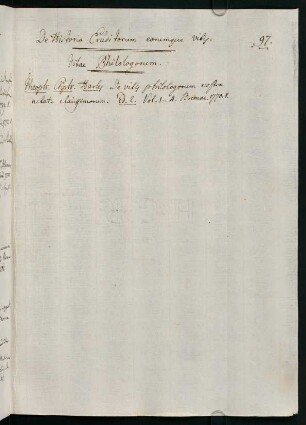 De Historia Eruditorum eorumque vitis.
97.
Vitae Philologorum.
Theoph. Christ. Harles De vitis philologorum nostra
aetate clarissimorum. Ed. 2. Vol. 1-4. Bremae. 1770.8.